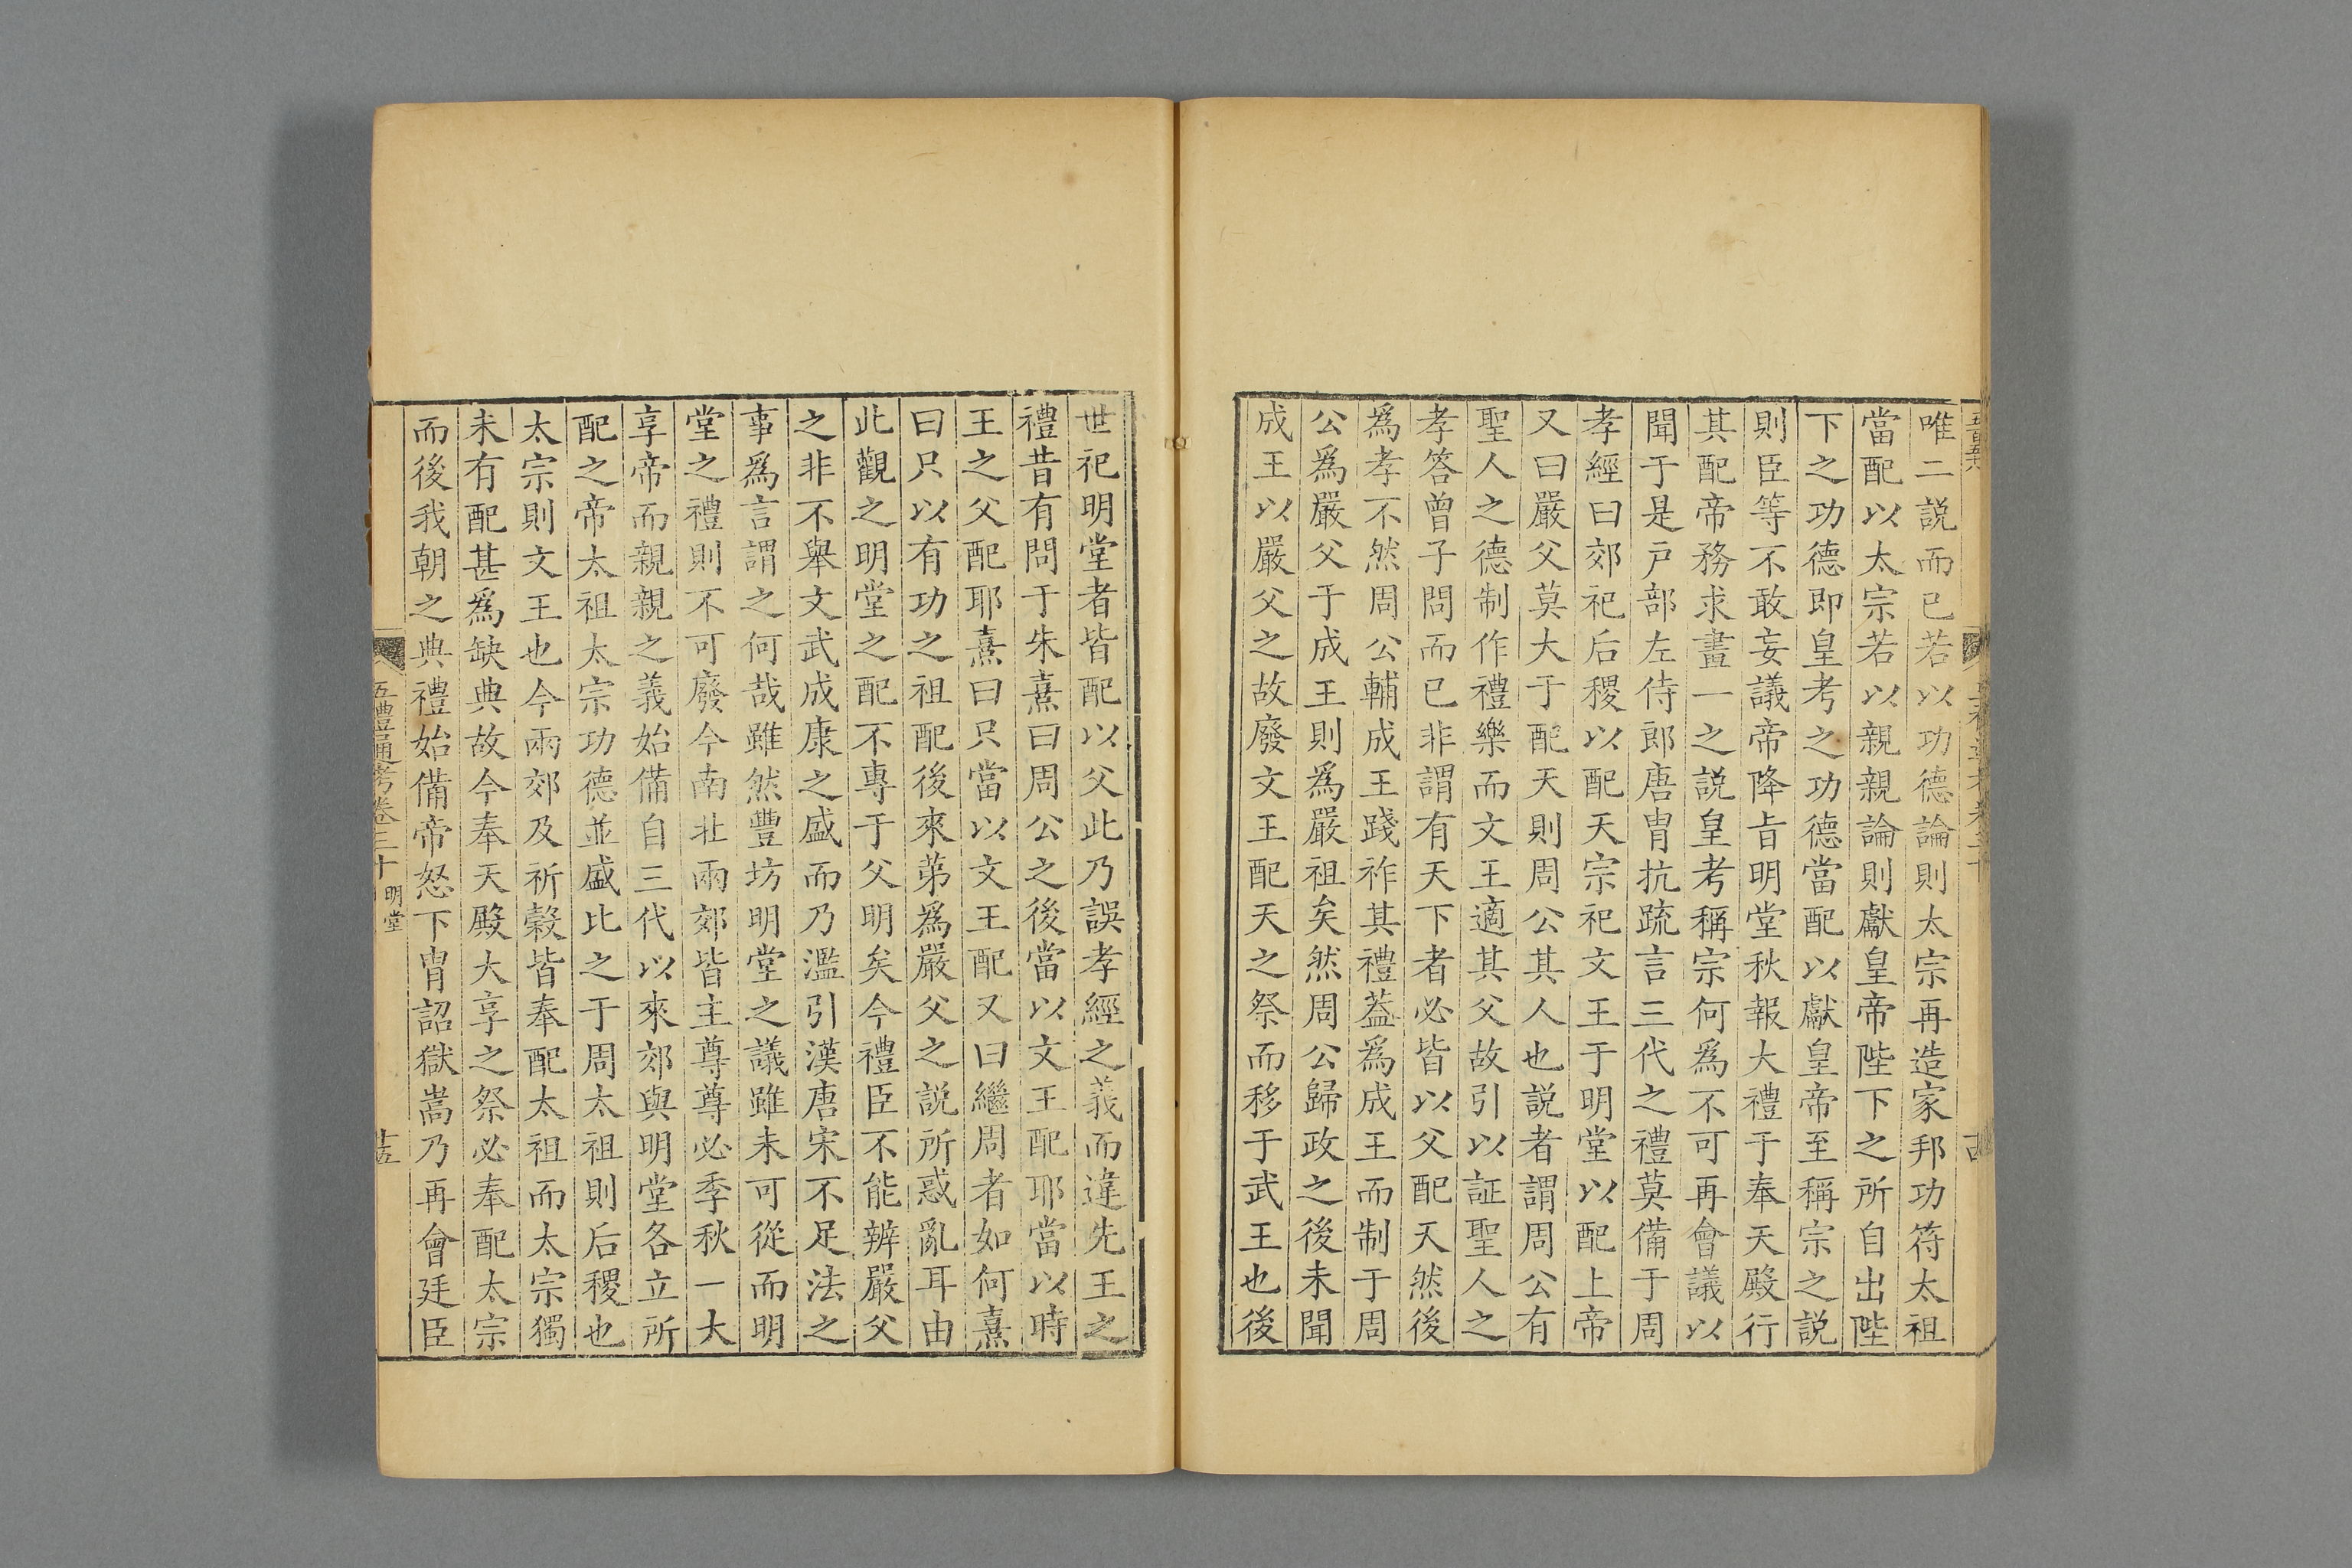 唯二説而已若以功德論則太宗再造家邦功符太祖
當配以太宗若以親親論則獻皇帝陛下之所自出陛
下之功德即皇考之功德當配以獻皇帝至稱宗之説
則臣等不敢妄議帝降㫖明堂秋報大禮于奉天殿行
其配帝務求畫一之說皇考稱宗何爲不可再會議以
聞于是戸部左侍郎唐胄抗疏言三代之禮莫備于周
孝經曰郊祀后稷以配天宗祀文王于明堂以配上帝
又曰嚴父莫大于配天則周公其人也説者謂周公有
聖人之德制作禮樂而文王適其父故引以証聖人之
孝答曾子問而已非謂有天下者必皆以父配天然後
爲孝不然周公輔成王踐祚其禮葢爲成王而制于周
公爲嚴父于成王則爲嚴祖矣然周公歸政之後未聞
成王以嚴父之故廢文王配天之祭而移于武王也後
世祀明堂者皆配以父此乃誤孝經之義而違先王之
禮昔有問于朱熹曰周公之後當以文王配耶當以時
王之父配耶熹曰只當以文王配又曰繼周者如何熹
曰只以有功之祖配後來苐爲嚴父之説所惑亂耳由
此觀之明堂之配不專于父明矣今禮臣不能辨嚴父
之非不舉文武成康之盛而乃濫引漢唐宋不足法之
事爲言謂之何哉雖然豐坊明堂之議雖未可從而明
堂之禮則不可廢今南北兩郊皆主尊尊必季秋一大
享帝而親親之義始備自三代以來郊與明堂各立所
配之帝太祖太宗功德並盛比之于周太祖則后稷也
太宗則文王也今兩郊及祈榖皆奉配太祖而太宗獨
未有配甚爲缺典故今奉天殿大享之祭必奉配太宗
而後我朝之典禮始備帝怒下胄詔獄嵩乃再會廷臣
五禮通考卷三十 明堂